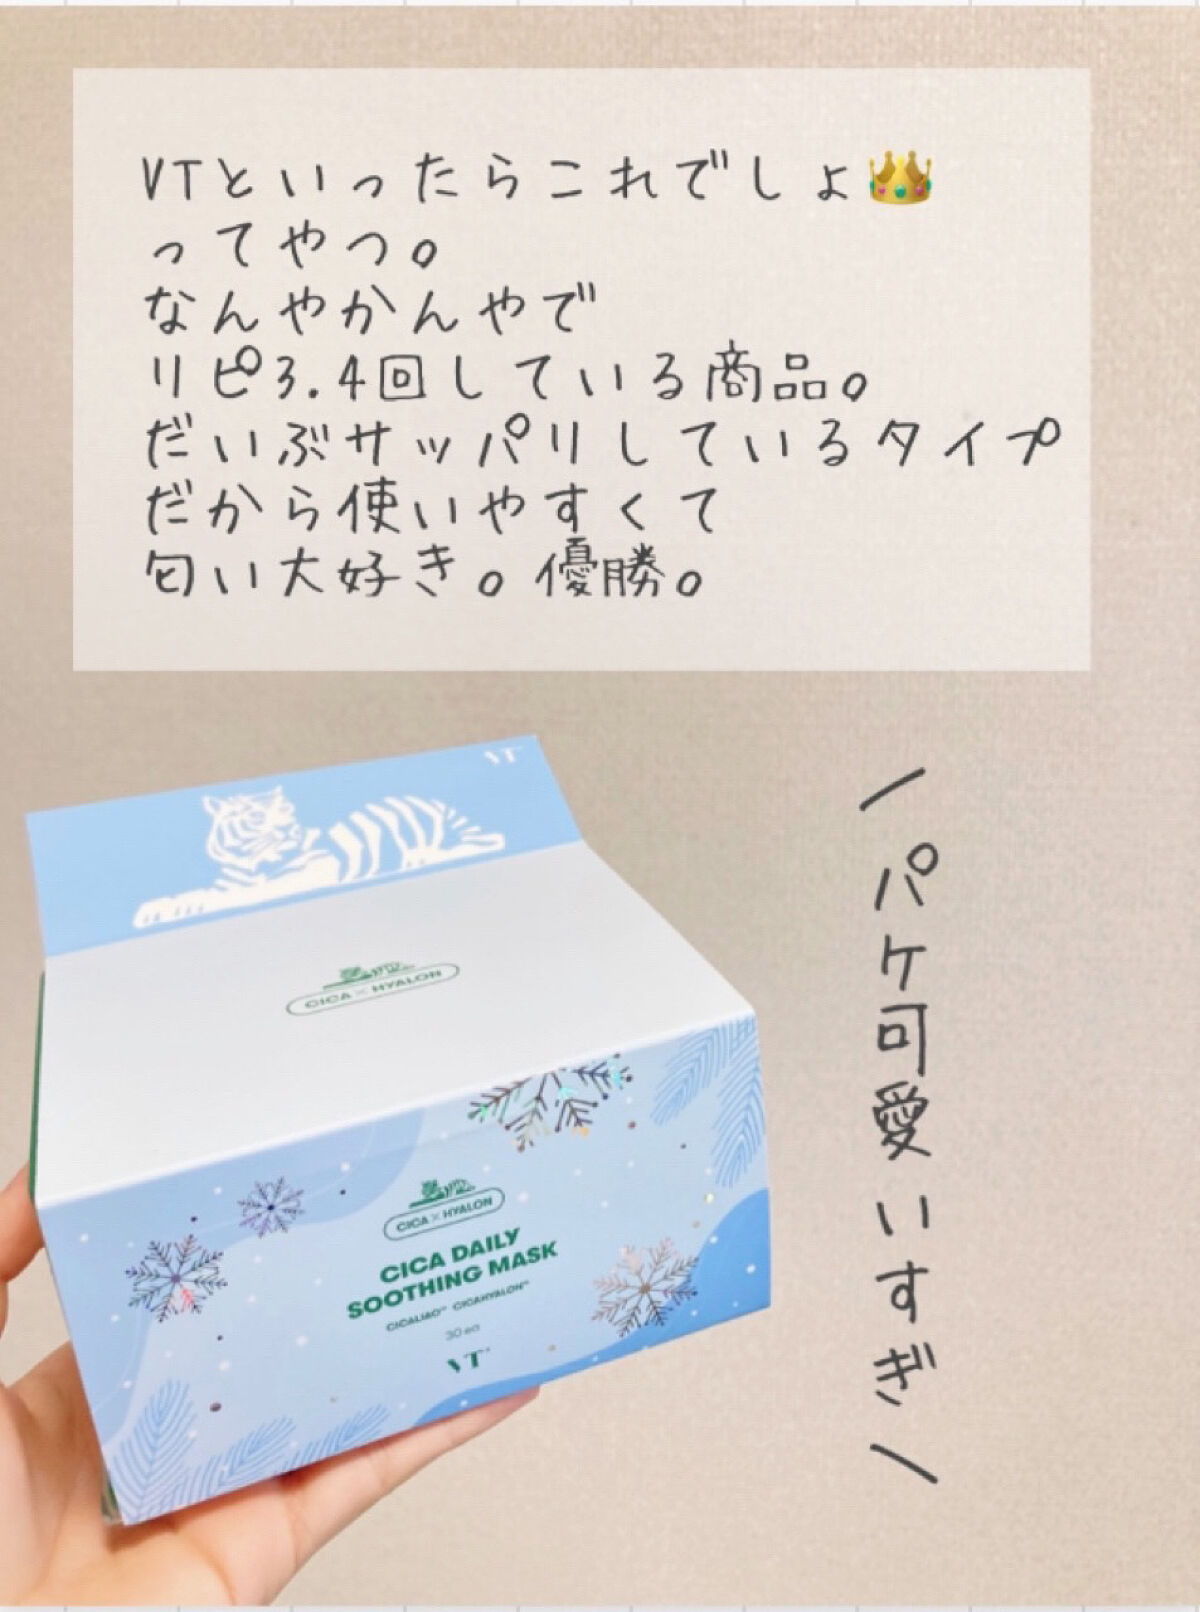 VTといったらこれでしょ👑
ってやつ。
なんやかんやで
リピ3.4回している商品。
だいぶサッパリしているタイプ
だから使いやすくて
匂い大好き。優勝。
VT
CICA×HYALON
CICA×HYALON
CICA DAILY
SOOTHING MASK
CICALIAO™ CICAHYALON™
30 ea
VT
パケ可愛いすぎ